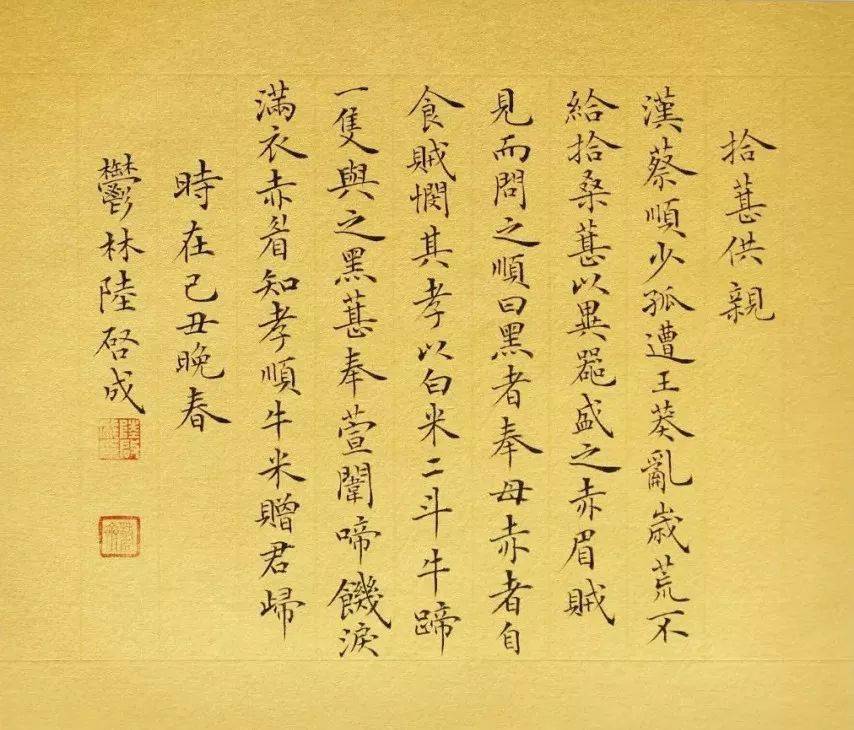 拾葚供親
漢蔡順少孤遭王莽亂歲荒不
給拾桑葚以異器盛之赤眉賊
見而問之順曰黑者奉母赤者自
食賊憫其孝以白米二斗牛蹄
一隻與之黑葚奉萱闈啼饑淚
滿衣赤眉知孝順牛米贈君歸
時在己丑晚春
鬱林陸啓成